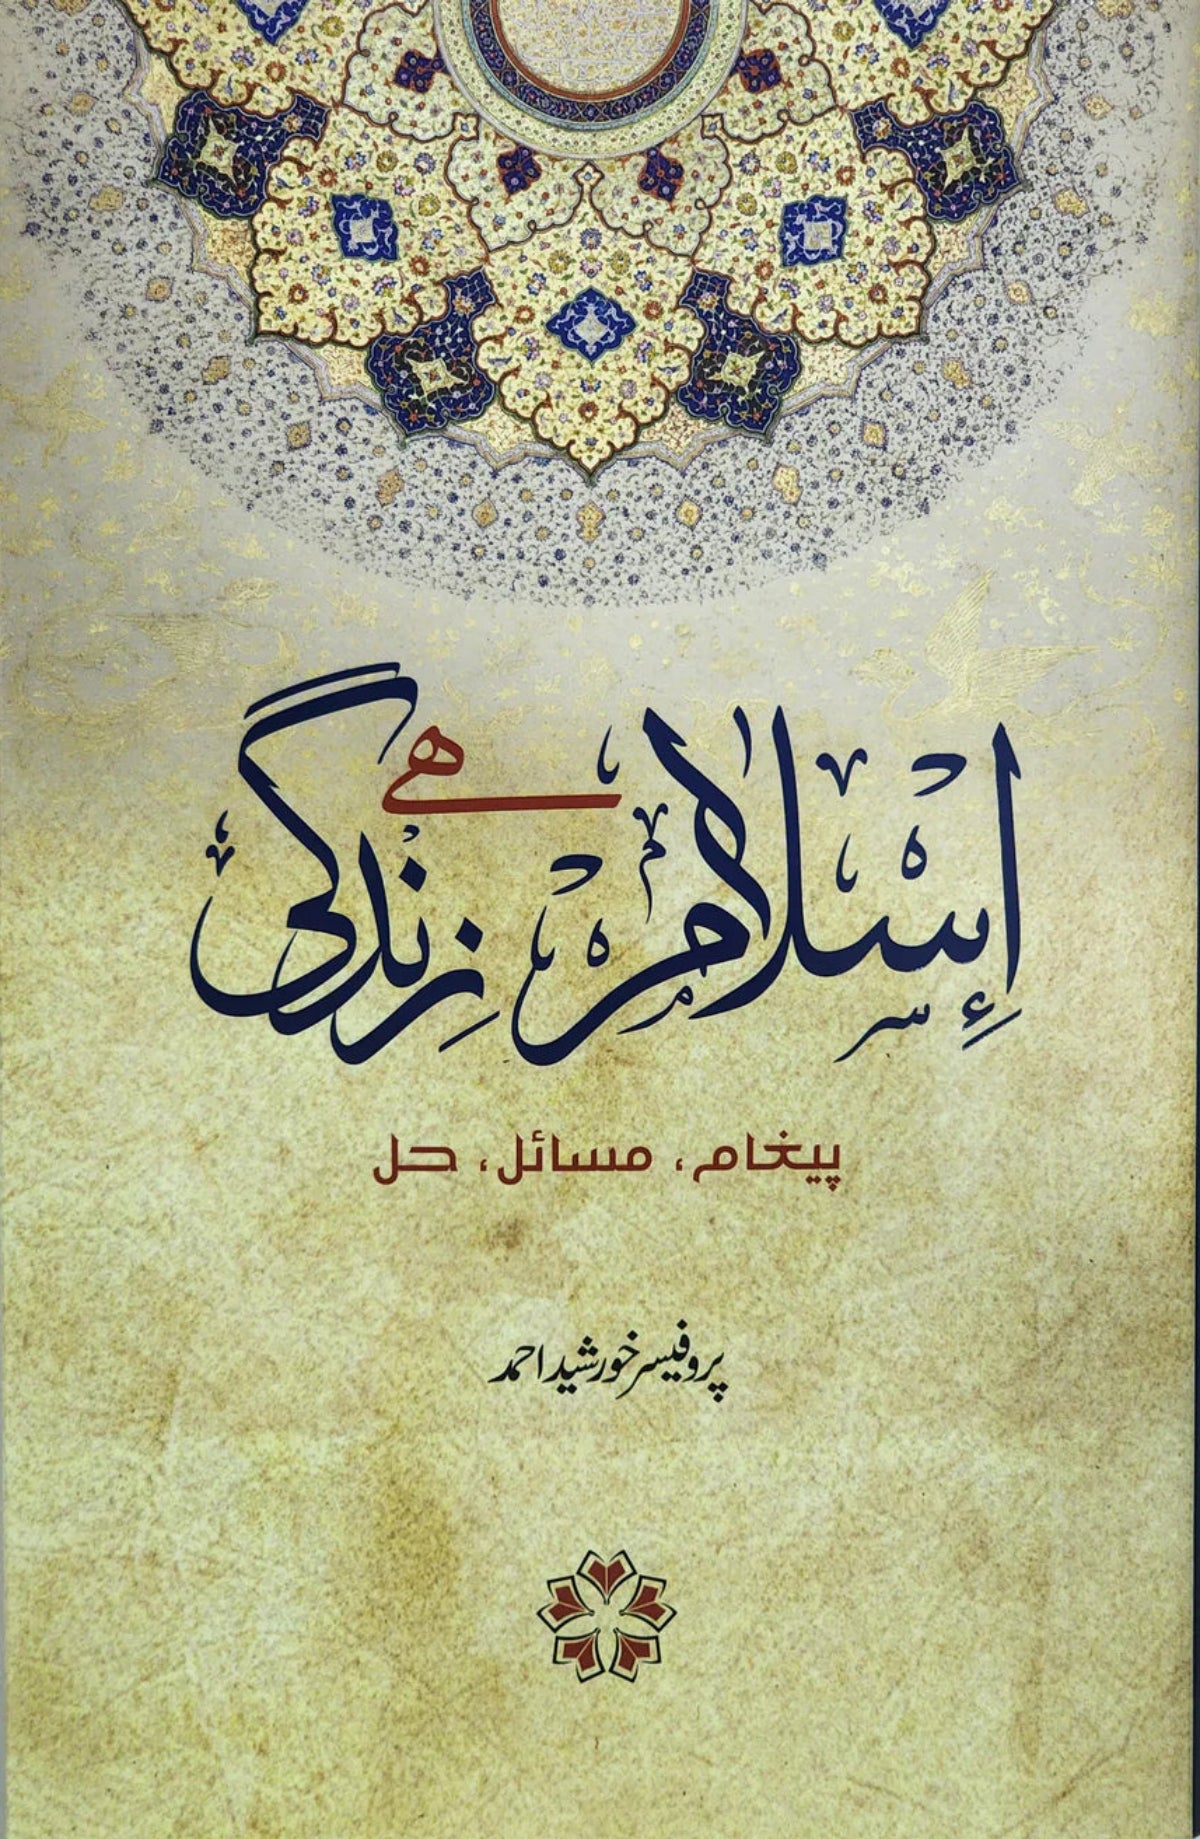 اِسلام زِندگی ہے
پیغام، مسائل، حل
پروفیسر خورشید احمد